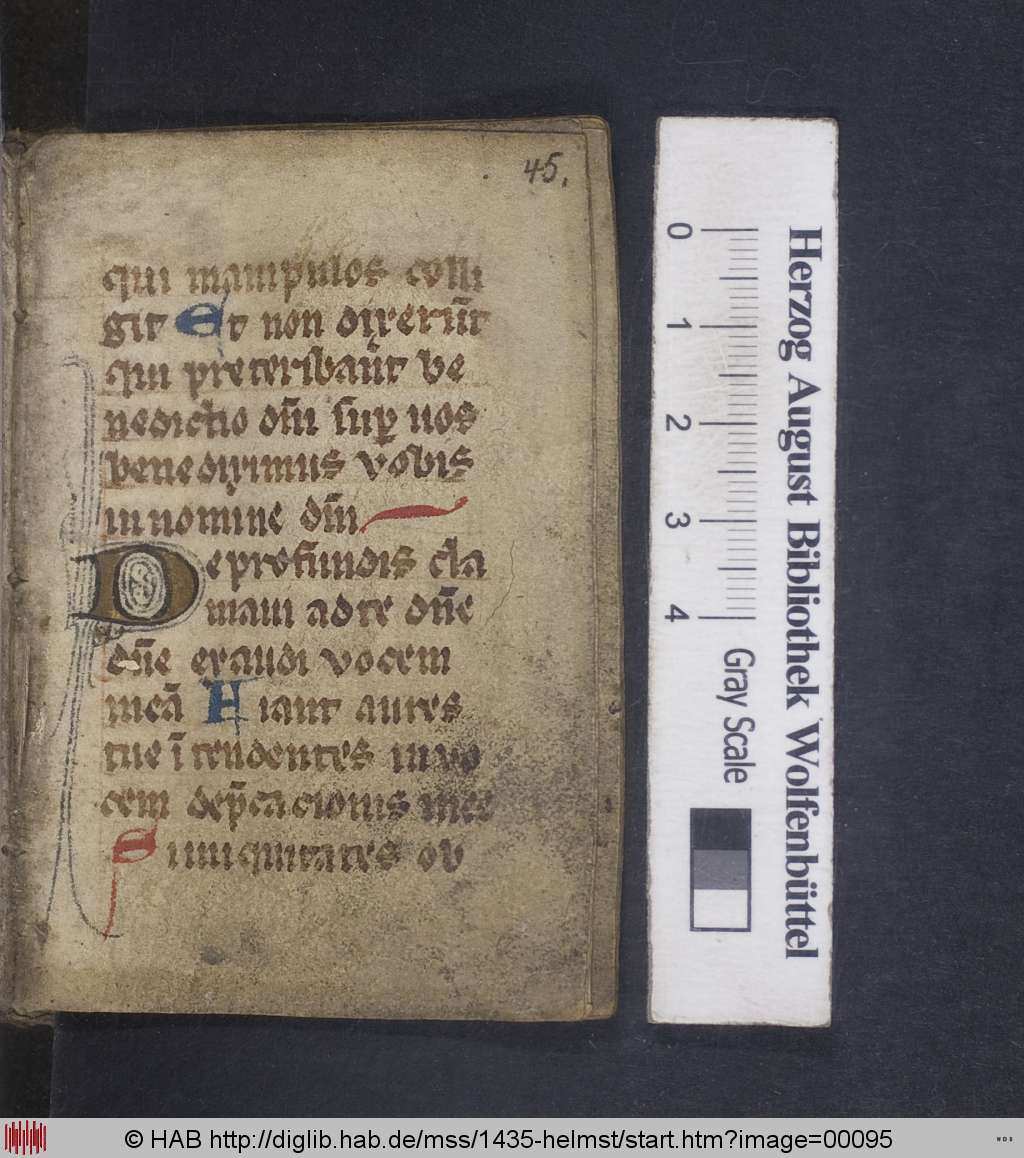 45.
qui manipulos colli
git Et non dixerūt
qui preteribāt ve
nedictio dn̄i sup̱ uos
benediximus vobis
in nomine dn̄i
De profundis cla
maui ad te dn̄e
dn̄e exaudi vocem
meā Fiant aures
tue ītendentes in vo
cem dep̄cacionis mee
Si iniquitates ob
Herzog August Bibliothek Wolfenbüttel
0 1 2 3 4 Gray Scale
© HAB http://diglib.hab.de/mss/1435-helmst/start.htm?image=00095